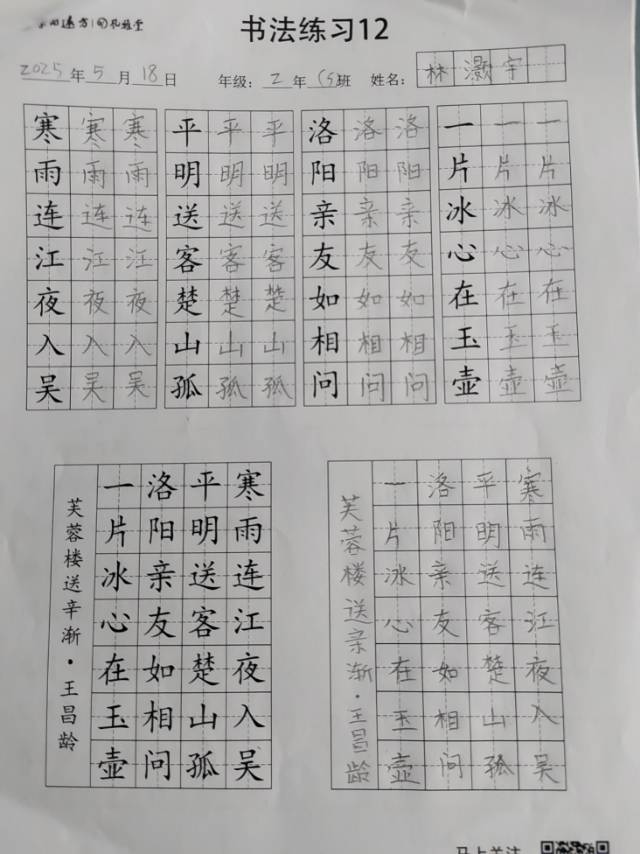 书法练习12
2025年5月18日 年级：2年(5)班 姓名：林灏宇
寒寒寒 平平平 洛洛洛 一一一
雨雨雨 明明明 阳阳阳 片片片
连连连 送送送 亲亲亲 冰冰冰
江江江 客客客 友友友 心心心
夜夜夜 楚楚楚 如如如 在在在
入入入 山山山 相相相 玉玉玉
吴吴吴 孤孤孤 问问问 壶壶壶
寒雨连江夜入吴
平明送客楚山孤
洛阳亲友如相问
一片冰心在玉壶
芙蓉楼送辛渐·王昌龄
寒雨连江夜入吴
平明送客楚山孤
洛阳亲友如相问
一片冰心在玉壶
芙蓉楼送亲渐·王昌龄
马上关注